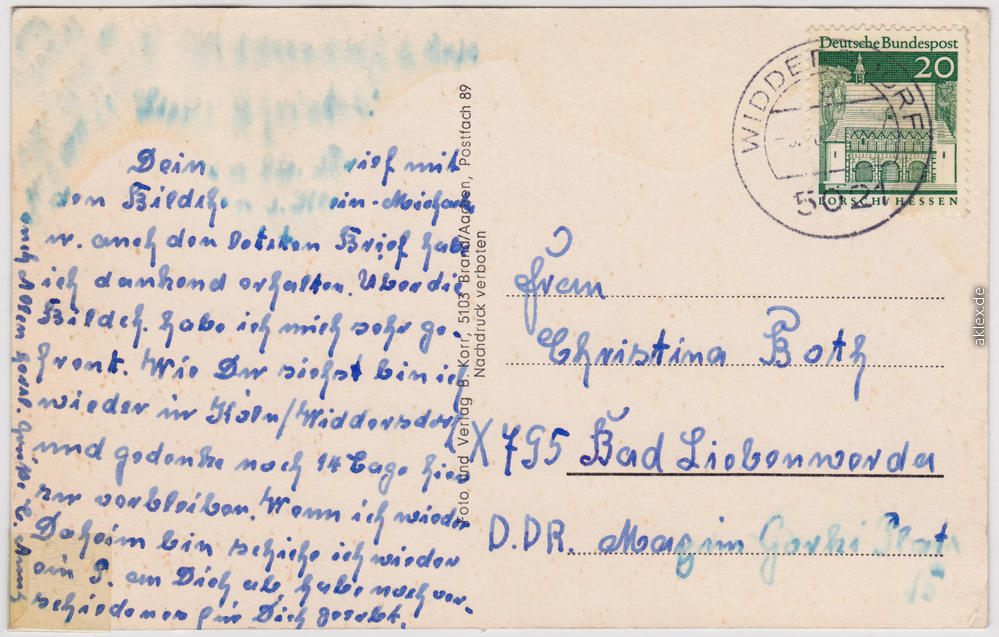 Dein rief mit
den Bildche ein-Michae
w. auch den letzten Brief hab
ich dankend erhalten. Über die
Bildch. habe ich mich sehr ge-
freut. Wie Du siehst bin ich
wieder in Köln/Widdersdorf
und gedenke noch 14 Tage hier
zu verbleiben. Wenn ich wieder
Daheim bin schicke ich wieder
ein P. an Dich ab, habe noch ver-
schiedenes für Dich gesorgt.
auch Allen herzl.
Foto und Verlag B. Korr, 5103 Brand/Aachen, Postfach 89
Nachdruck verboten
WIDDERSDORF
5021
Deutsche Bundespost
20
LORSCH/HESSEN
Frau
Christina Both
X 795 Bad Liebenwerda
D.DR. Maxim Gorki Platz
15
aklex.de